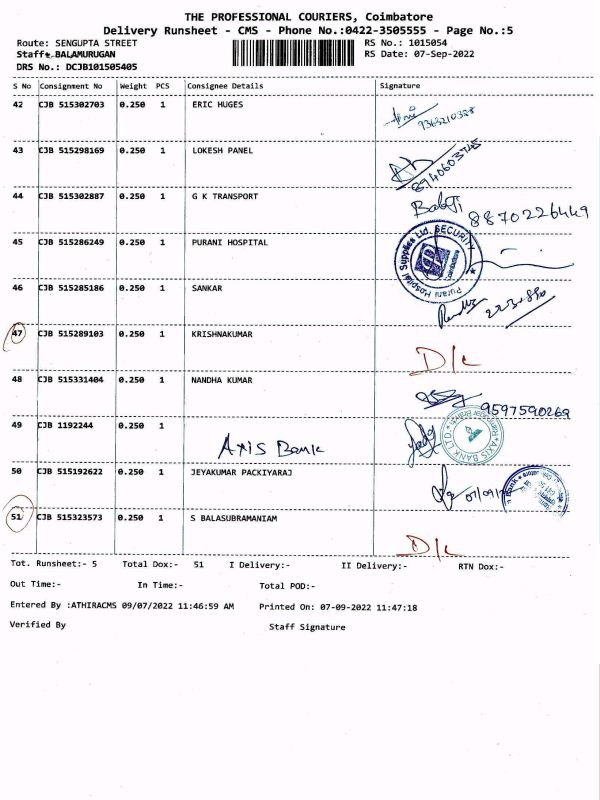 THE PROFESSIONAL COURIERS, Coimbatore
Delivery Runsheet - CMS - Phone No.:0422-3505555 - Page No.:5
Route: SENGUPTA STREET RS No.: 1015054
Staff: BALAMURUGAN RS Date: 07-Sep-2022
DRS No.: DCJB101505405
S No Consignment No Weight PCS Consignee Details Signature
42 CJB 515302703 0.250 1 ERIC HUGES
43 CJB 515298169 0.250 1 LOKESH PANEL
8940603745
44 CJB 515302887 0.250 1 G K TRANSPORT
Babji 8870226449
45 CJB 515286249 0.250 1 PURANI HOSPITAL
Purani Hospital Supplies Ltd. SECURITY
46 CJB 515285186 0.250 1 SANKAR
47 CJB 515289103 0.250 1 KRISHNAKUMAR
D/L
48 CJB 515331404 0.250 1 NANDHA KUMAR
9597590269
49 CJB 1192244 0.250 1
Axis Bank
AXIS BANK LTD
50 CJB 515192622 0.250 1 JEYAKUMAR PACKIYARAJ
51 CJB 515323573 0.250 1 S BALASUBRAMANIAM
D/L
Tot. Runsheet:- 5 Total Dox:- 51 I Delivery:- II Delivery:- RTN Dox:-
Out Time:- In Time:- Total POD:-
Entered By :ATHIRACMS 09/07/2022 11:46:59 AM Printed On: 07-09-2022 11:47:18
Verified By Staff Signature